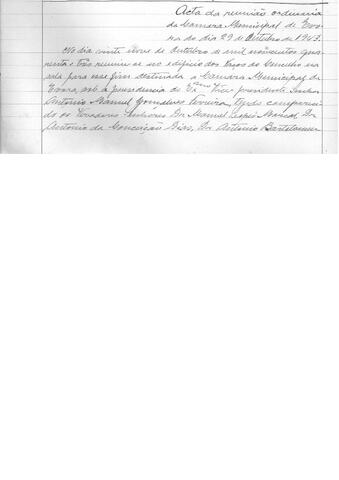 Acta da reunião ordinaria
da Camara Municipal de Evo
ra do dia 29 de Outubro de 1943.
No dia vinte e nove de Outubro de mil novecentos qua
renta e três reuniu-se no edificio dos Paços do Concelho na
sala para esse fim destinada a Camara Municipal de
Evora, sob a presidencia do Exmo Vice presidente Senhor
Antonio Manuel Gonçalves Ferreira,
os Vereadores Senhores Dr. Manuel Lopes Marçal, Dr.
Antonio da Conceição Dias, Dr. Antonio Bartolomeu